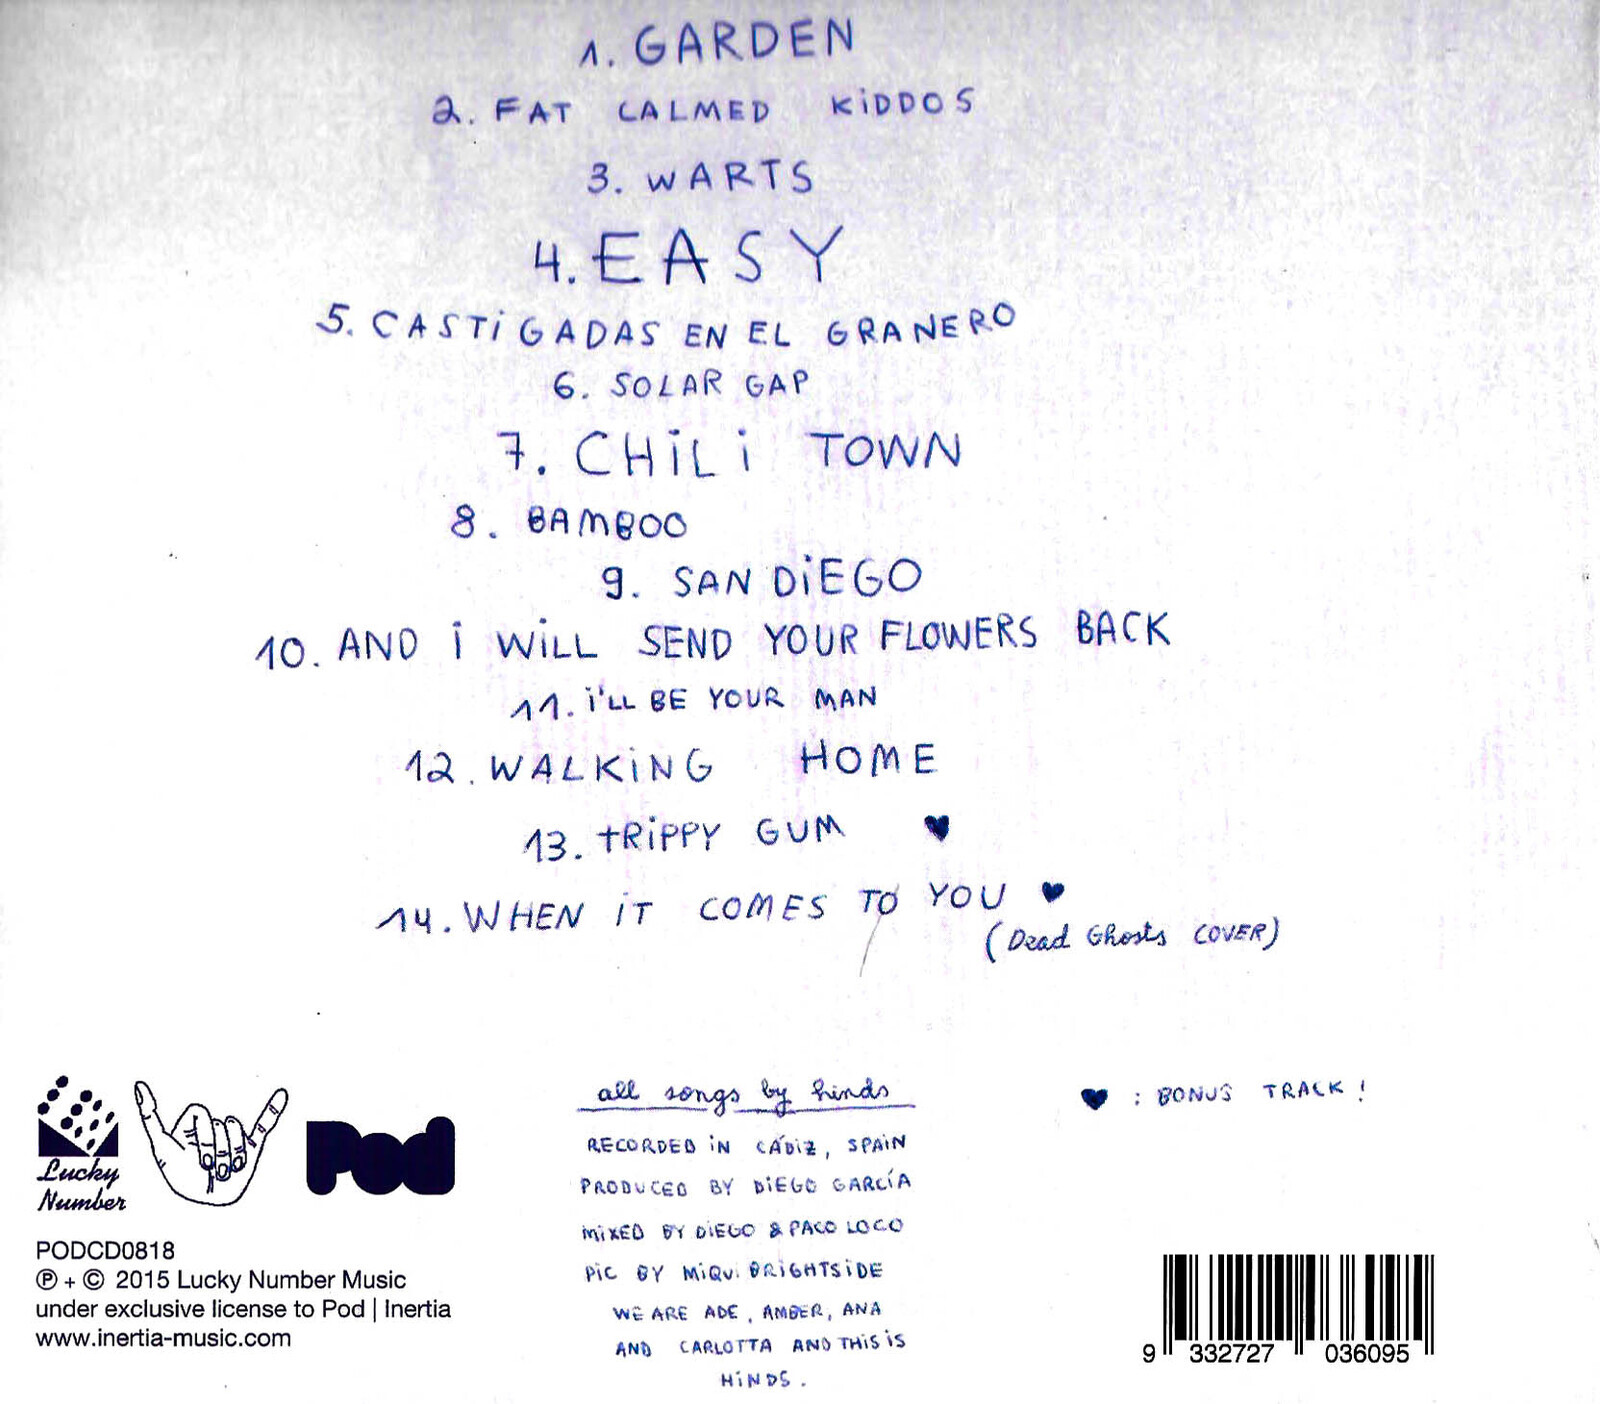 1. GARDEN
2. FAT CALMED KiDDOS
3. WARTS
4. EASY
5. CASTiGADAS EN EL GRANERO
6. SOLAR GAP
7. CHiLi TOWN
8. BAMBOO
9. SAN DiEGO
10. AND i WiLL SEND YOUR FLOWERS BACK
11. i'LL BE YOUR MAN
12. WALKiNG HOME
13. tRiPPY GUM ♥
14. WHEN iT COMES TO YOU ♥
(Dead Ghosts COVER)
Lucky
Number
Pod
PODCD0818
℗ + © 2015 Lucky Number Music
under exclusive license to Pod | Inertia
www.inertia-music.com
all songs by hinds
RECORDED iN CÁDiZ, SPAiN
PRODUCED BY DiEGO GARCÍA
MiXED BY DiEGO & PACO LOCO
PiC BY MiQUi BRiGHTSiDE
WE ARE ADE, AMBER, ANA
AND CARLOTTA AND THiS iS
HiNDS.
♥ : BONUS TRACK!
9 332727 036095